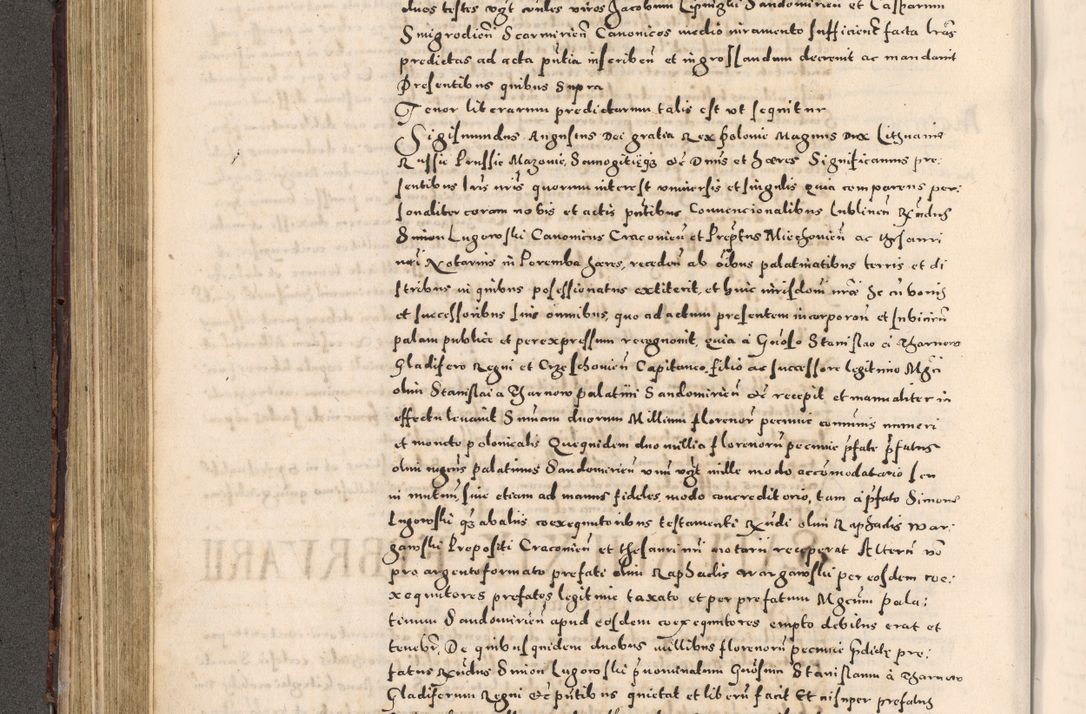 duos testes vget coniles viros Jacobum Lipniczki Sandomirien et Casparum
Smigrodien Scarmirien Canonicos medio iuramento sufficient facta lras
predictas ad acta putia inscriben et ingrossandum decreuit ac mandauit
Presentibus quibus supra
Tenor literarum predictarum talis est vt sequitur
Sigismundus Augustus Dei gratia Rex Polonie Magnus Dux Lithuanie
Russie Prussie Mazouie, Samogitieqz etc Dnus et haeres Significamus pre:
sentibus lris nris quorum interest vniuersis et singulis quia comparens per:
sonaliter coram nobis et actis putibus Conuencionalibus Lublinen Rxndus
Simon Lugowski Canonicus Cracouien et Preptus Miechouien ac thesauri
nri Notarius in Poremba haeres, receden ab oibus palatinatibus terris et di
strictibus in quibus possessionatus extiterit, et huic iurisdoni nrae se cu bonis
et successoribus suis omnibus, quo ad actum presentem incorporan et subiicien
palam publice et per expressum recognouit, quia a Gnoso Stanislao a Tharnow
Gladifero Regni et Crzeschouien Capitaneo, filio ac successore legitimo Mgci
olim Stanislai a Tharnow palatini Sandomirien etc recepit et manualiter in
effectu leuauit Sumam duorum Millium florenor pecunie comunis numeri
et monete polonicalis Que quidem duo millia florenoru pecunie pfate pfatus
olim mgcus palatinus Sandomirien vnu vget mille modo accomodatario seu
in mutuu, siue etiam ad manus fideles, modo concreditorio, tam a pfato Simone
Lugowski qz ab aliis coexequutoribus testamenti Rxndi olim Raphaelis War:
gawski Prepositi Cracouien et thesauri nri notarii receperat Alteru vo
pro argento formato prefati olim Raphaelis Wargawski per eosdem coe:
xequutores prefatos legitime taxato et per prefatum Mgcum pala:
tinum Sandomirien apud eosdem coexequutores empto debitus erat et
tenebr, De quibus quidem duobus millibus florenoru pecunie pdicte pre:
fatus Rxndus Simon Lugowski pnominatum Gnosum Stanislaum a Tharnow
Gladiferum Regni etc putibus quietat et liberu facit Et nisuper prefatus